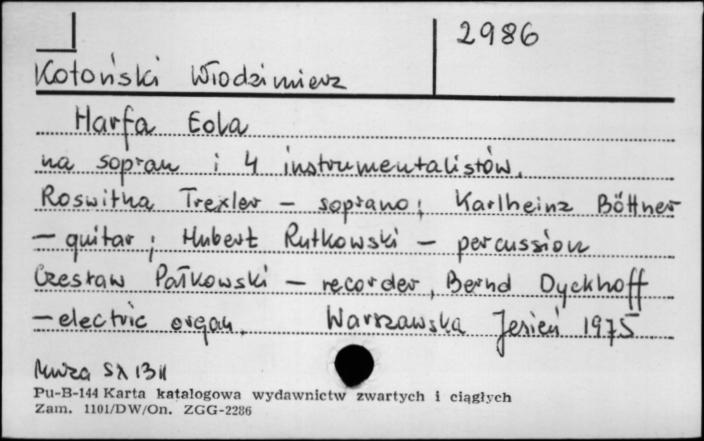 2986
Kotoński Włodzimierz
Harfa Eola
na sopran i 4 instrumentalistów.
Roswitha Trexler – soprano; Karlheinz Böttner
– guitar; Hubert Rutkowski – percussion
Czesław Pałkowski – recorder, Bernd Dyckhoff
– electric organ. Warszawska Jesień 1975
Muza SX 1311
Pu-B-144 Karta katalogowa wydawnictw zwartych i ciągłych
Zam. 1101/DW/On. ZGG-2286